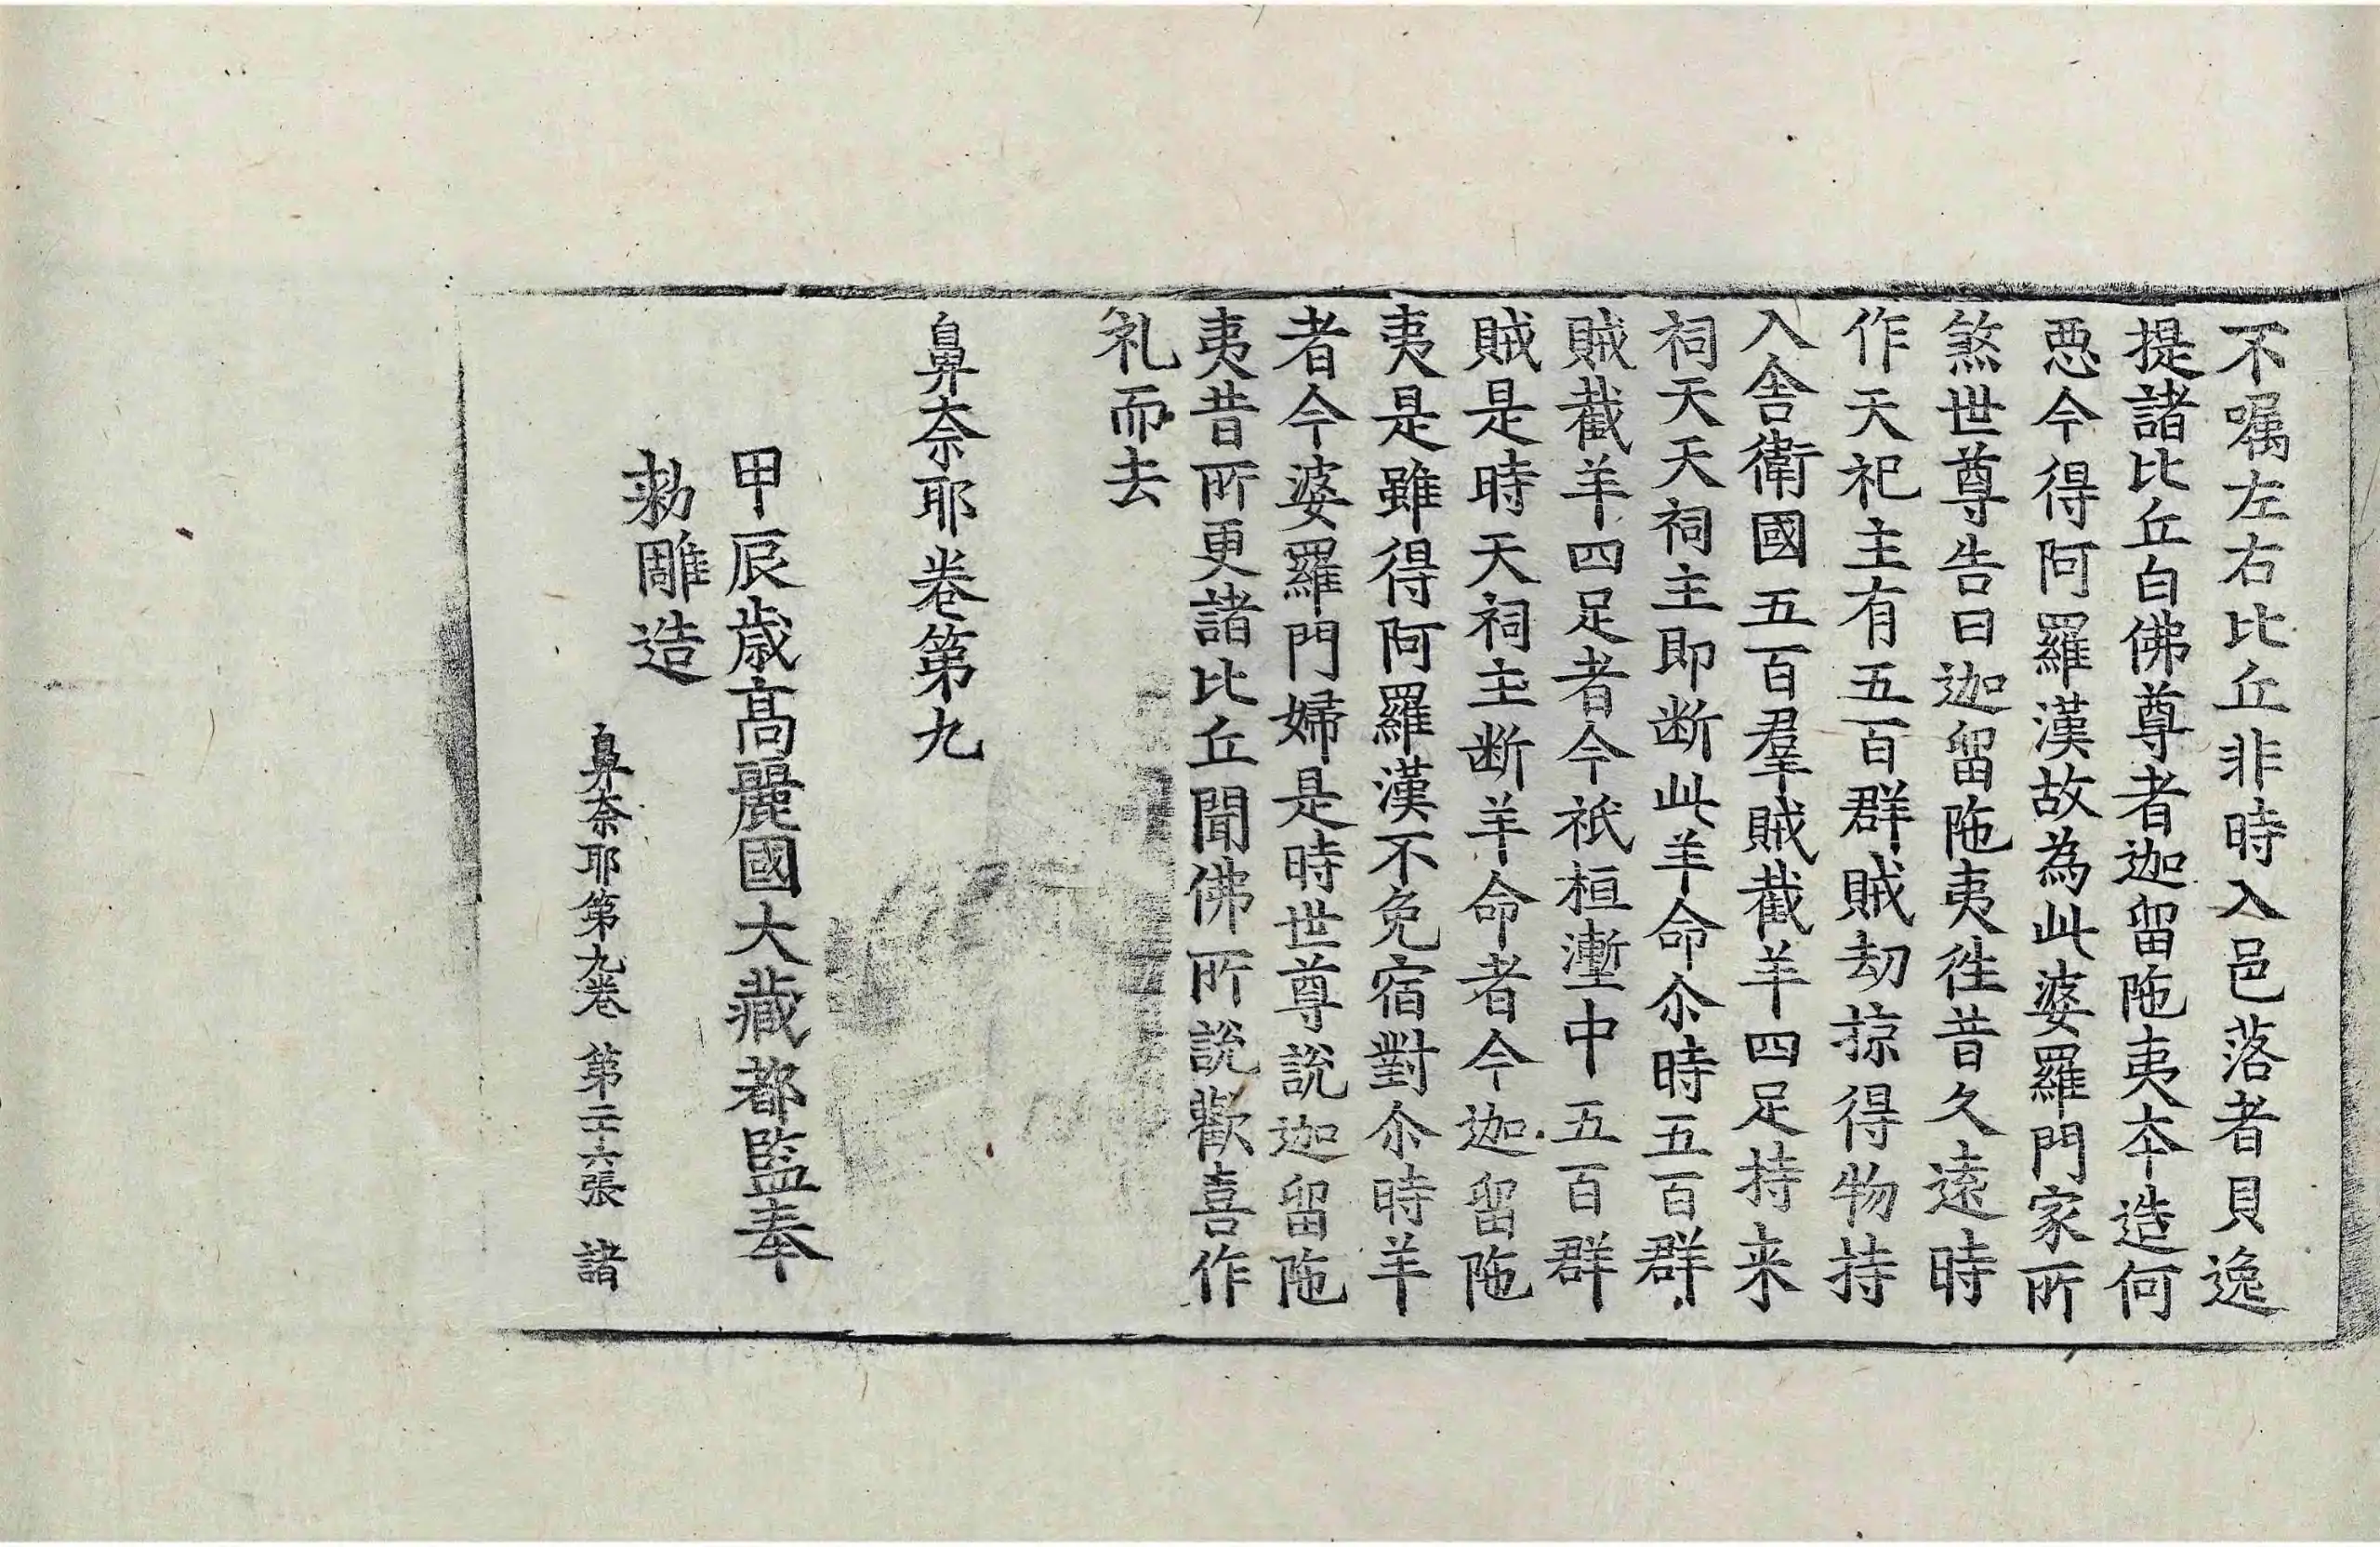 不嘱左右比丘非時入邑落者貝逸
提諸比丘白佛尊者迦留陁夷夲造何
惡今得阿羅漢故為此婆羅門家所
煞世尊告曰迦留陁夷徃昔久遠時
作天祀主有五百群賊劫掠得物持
入舎衛國五百羣賊截羊四足持来
祠天天祠主即断此羊命尒時五百群
賊截羊四足者今祇桓壍中五百群
賊是時天祠主断羊命者今迦留陁
夷是雖得阿羅漢不免宿對尒時羊
者今婆羅門婦是時世尊說迦留陁
夷昔所更諸比丘聞佛所說歡喜作
礼而去
鼻奈耶卷第九
甲辰歳髙麗國大藏都監奉
勑雕造
鼻奈耶第九卷 第二十六張 諸